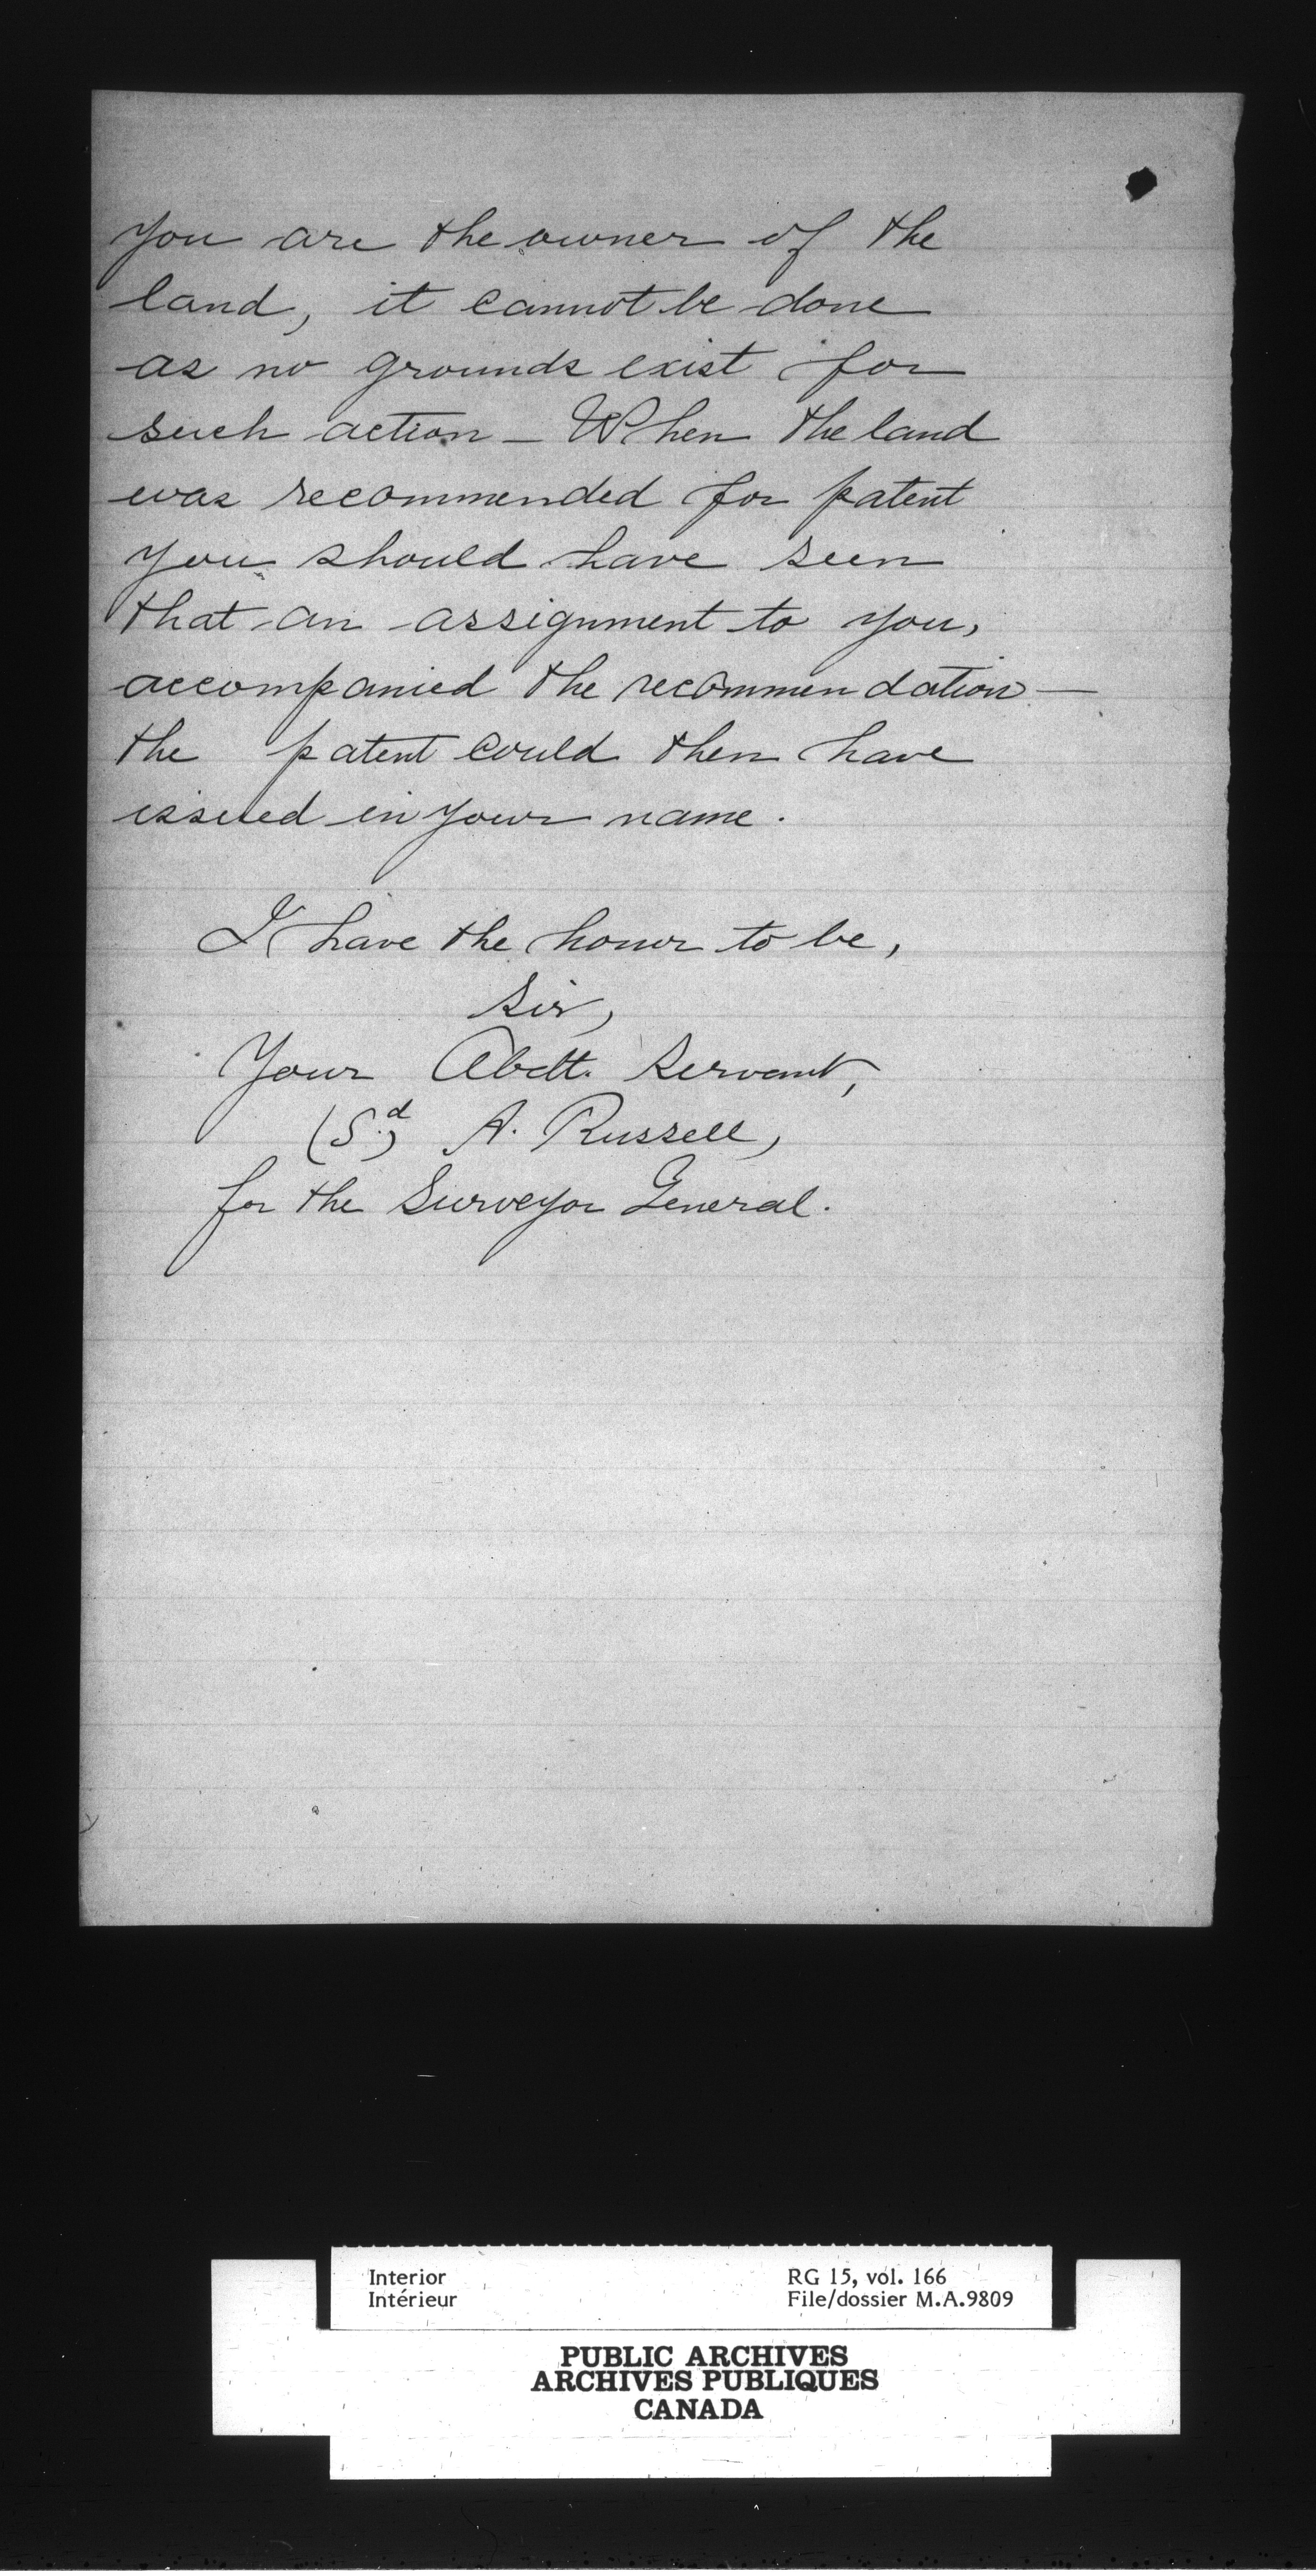 you are the owner of the
land, it cannot be done
as no grounds exist for
such action - When the land
was recommended for patent
you should have seen
that an assignment to you,
accompanied the recommendation -
the patent could then have
issued in your name.
I have the honor to be,
Sir,
Your Obdt. Servant,
(S.d) A. Russell,
for the Surveyor General.
Interior
Intérieur
RG 15, vol. 166
File/dossier M.A.9809
PUBLIC ARCHIVES
ARCHIVES PUBLIQUES
CANADA